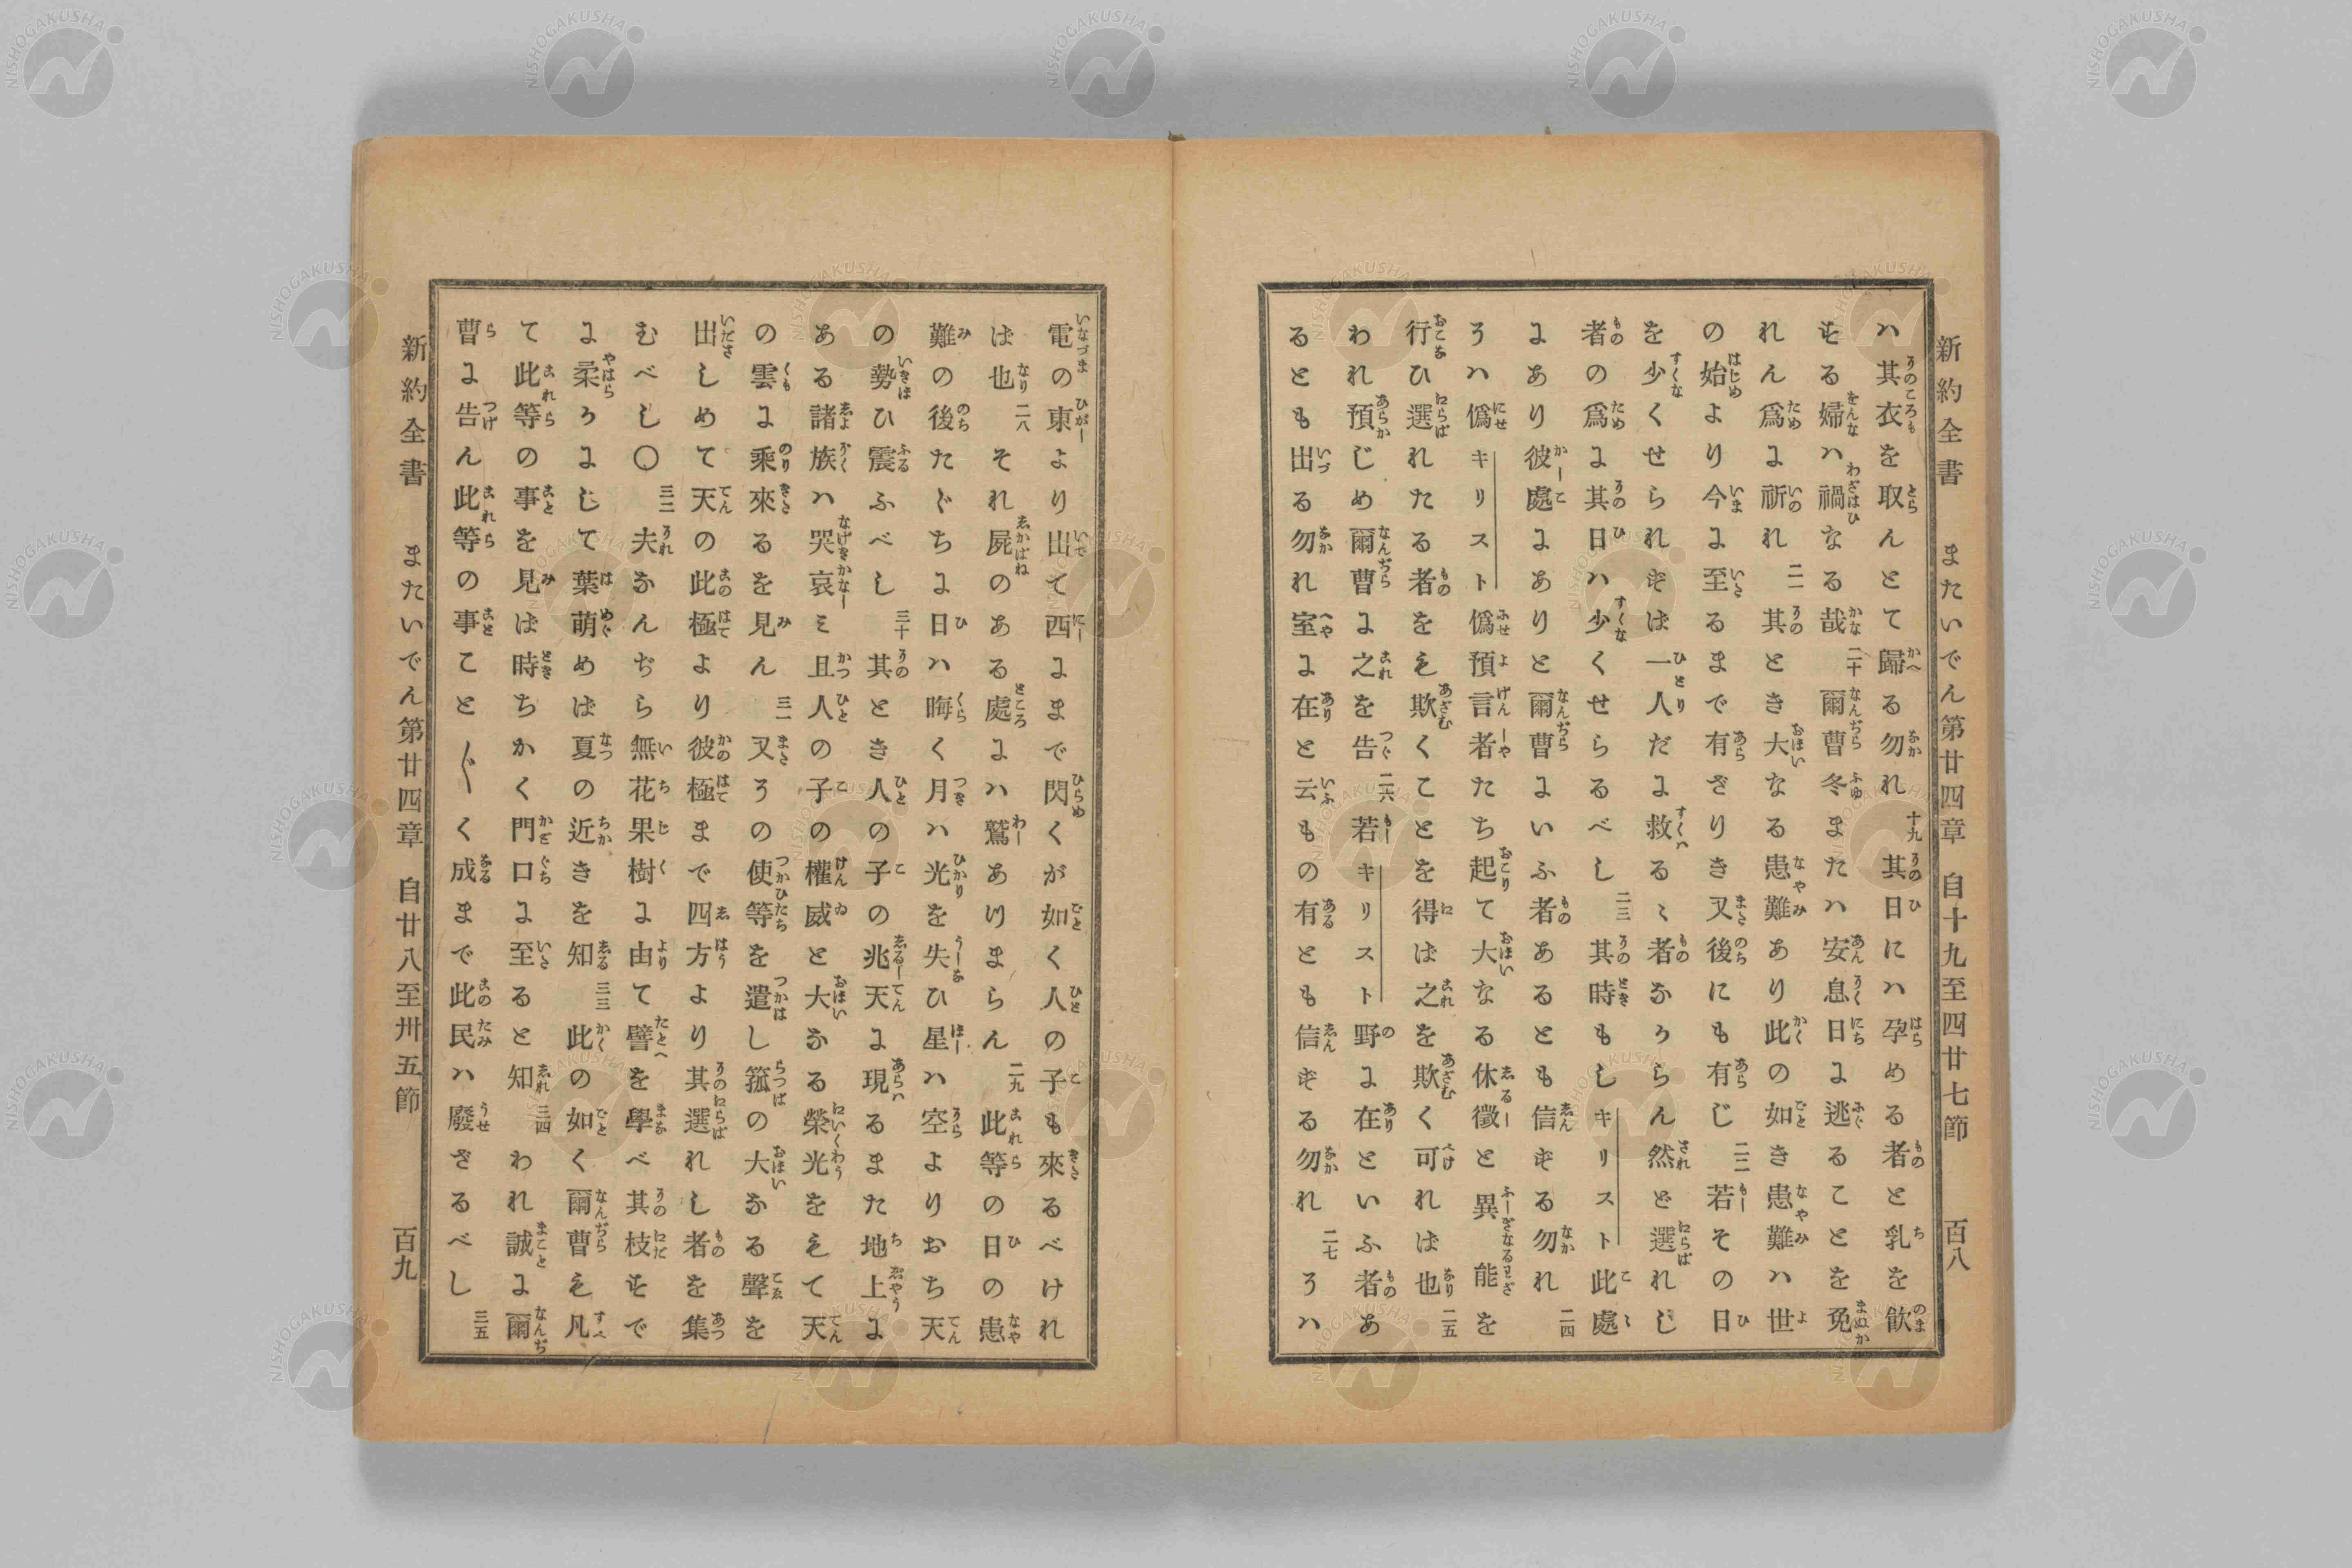 新約全書 またいでん第廿四章 自十九至四廿七節 百八
ハ其衣を取んとて歸る勿れ 十九 其日にハ孕める者と乳を飮
せる婦ハ禍なる哉 二十 爾曹冬または安息日に逃ることを免
れん爲に祈れ 二一 其とき大なる患難あり此の如き患難ハ世
の始より今に至るまで有ざりき又後にも有じ 二二 若その日
を少くせられずば一人だに救るゝ者なからん然ど選れし
者の爲に其日ハ少くせらるべし 二三 其時もしキリスト此處
にあり彼處にありと爾曹にいふ者あるとも信ずる勿れ 二四
そハ僞キリスト僞預言者たち起て大なる休徵と異能を
行ひ選れたる者をも欺くことを得ば之を欺く可れば也 二五
われ預じめ爾曹に之を告 二六 若キリスト野に在といふ者あ
るとも出る勿れ室に在と云もの有とも信ずる勿れ 二七 そハ
電の東より出て西にまで閃くが如く人の子も來るべけれ
ば也 二八 それ屍のある處にハ鷲あつまらん 二九 此等の日の患
難の後たゞちに日ハ晦く月ハ光を失ひ星ハ空よりおち天
の勢ひ震ふべし 三十 其とき人の子の兆天に現るまた地上に
ある諸族ハ哭哀み且人の子の權威と大なる榮光をもて天
の雲に乘來るを見ん 三一 又その使等を遣し箛の大なる聲を
出しめて天の此極より彼極まで四方より其選れし者を集
むべし〇 三二 夫なんぢら無花果樹に由て譬を學べ其枝すで
に柔かにじて葉萌めば夏の近きを知 三三 此の如く爾曹も凡
て此等の事を見ば時ちかく門口に至ると知 三四 われ誠に爾
曹に告ん此等の事こと〴〵く成まで此民ハ廢ざるべし 三五
新約全書 またいでん第廿四章 自廿八至卅五節 百九
NISHOGAKUSHA